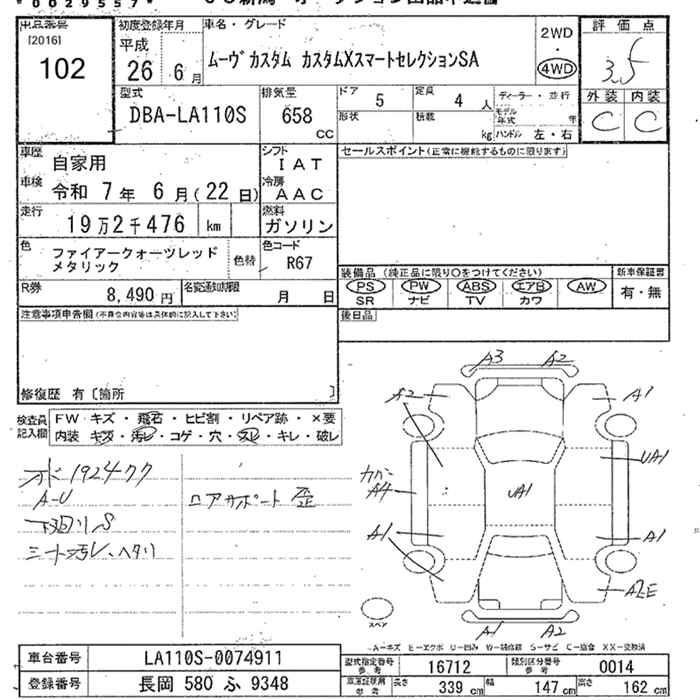 *0029557*
出品番号
[2016]
102
初度登録年月
平成
26 6月
車名・グレード
ムーヴカスタム カスタムXスマートセレクションSA
2WD
・
4WD
評価点
3.5
外装 内装
C C
型式
DBA-LA110S
排気量
658 cc
ドア
5
定員
4 人
形状
積載
kg
ディーラー・並行
モデル年式 年
ハンドル 左・右
車歴
自家用
車検
令和 7年 6月(22日)
シフト
IAT
冷房
AAC
走行
19万2千476 km
燃料
ガソリン
色
ファイアークォーツレッド
メタリック
色替
色コード
R67
R券
8,490円
名変通知期限
月 日
セールスポイント(正常に機能するものに限ります)
装備品 (純正品に限り○をつけてください)
PS PW ABS エアB AW
SR ナビ TV カワ
新車保証書
有・無
後日品
注意事項申告欄(不具合内容等は具体的に記入して下さい)
修復歴 有〔箇所 〕
検査員
記入欄
FW キズ・飛石・ヒビ割・リペア跡・×要
内装 キズ・汚レ・コゲ・穴・スレ・キレ・破レ
A-U
下廻りS
シート汚レ、ヘタリ
コアサポート 歪
A3 A2
A2 A1
カバー
A4
UA1
UA1
A1 A1
A2E
A1 A2
スペア
A-キズ E-エクボ U-凹み W-補修痕 S-サビ C-腐食 XX-交換済
車台番号
LA110S-0074911
登録番号
長岡 580 ふ 9348
型式指定番号
参考
16712
類別区分番号
参考
0014
車庫証明用
参考
長さ
339 cm
幅
147 cm
高さ
162 cm